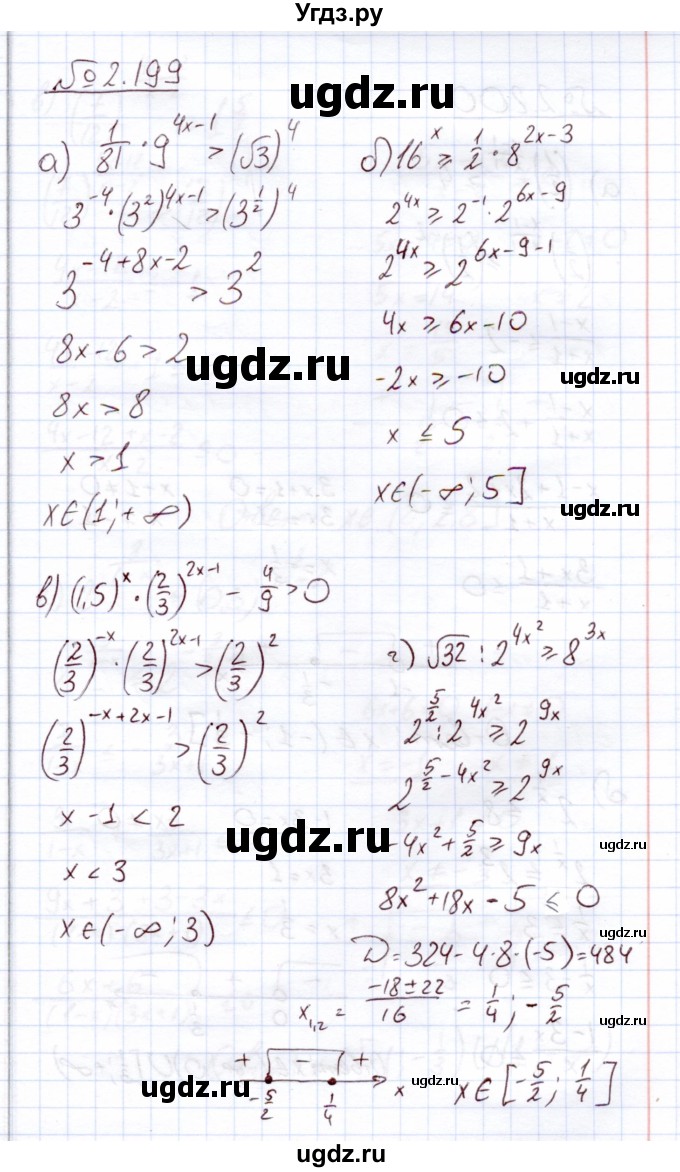 Угдз.ру
№ 2.199
ugdz.ru
а) 1/81 · 9^(4x-1) > (√3)^4
3^(-4) · (3^2)^(4x-1) > (3^(1/2))^4
3^(-4+8x-2) > 3^2
8x - 6 > 2
8x > 8
x > 1
x ∈ (1; + ∞)
б) 16^x ⩾ 1/2 · 8^(2x-3)
2^(4x) ⩾ 2^(-1) · 2^(6x-9)
2^(4x) ⩾ 2^(6x-9-1)
4x ⩾ 6x - 10
-2x ⩾ -10
x ≤ 5
x ∈ (- ∞; 5]
ugdz.ru
ugdz.ru
ugdz.ru
в) (1,5)^x · (2/3)^(2x-1) - 4/9 > 0
(2/3)^(-x) · (2/3)^(2x-1) > (2/3)^2
(2/3)^(-x+2x-1) > (2/3)^2
x - 1 < 2
x < 3
x ∈ (- ∞; 3)
г) √32 : 2^(4x^2) ⩾ 8^(3x)
2^(5/2) : 2^(4x^2) ⩾ 2^(9x)
2^(5/2 - 4x^2) ⩾ 2^(9x)
-4x^2 + 5/2 ⩾ 9x
8x^2 + 18x - 5 ⩽ 0
D = 324 - 4·8·(-5) = 484
x_1,2 = (-18 ± 22)/16 = 1/4; -5/2
+ - +
-5/2 1/4 x
x ∈ [-5/2; 1/4]
ugdz.ru
ugdz.ru
ugdz.ru
ugdz.ru
ugdz.ru
ugdz.ru